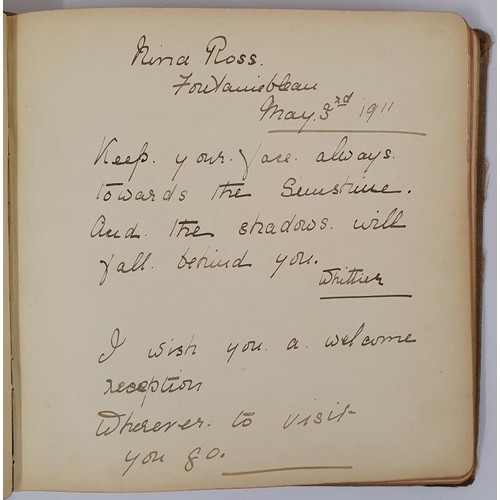 Nina Ross.
Fontainebleau
May. 3rd 1911
Keep. your. face. always.
towards the Sunshine.
And. the shadows. will
fall. behind you.
Whittier
I wish you. a. welcome
reception
Wherever. to visit
you go.